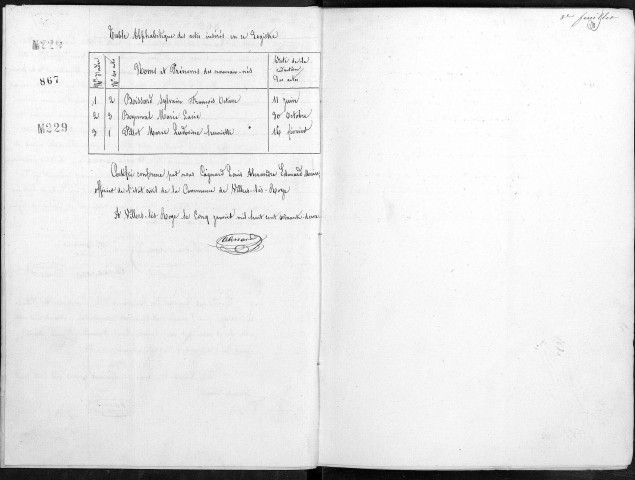 2e feuillet
Table Alphabétique des actes insérés en ce Registre
M229
867
M229
Nos d'ordre Nos des actes Noms et Prénoms des nouveau-nés Date de la rédaction des actes
1 2 Boissard Sylvain François Octave 11 juin
2 3 Marie Lucie 30 Octobre
3 1 Pillot Marie Ludovine henriette 16 février
Certifié conforme par nous Louis Alexandre Edmond Maire
officier de l'état civil de la Commune de Villers-lès-Roye
A Villers-lès Roye le cinq janvier mil huit cent